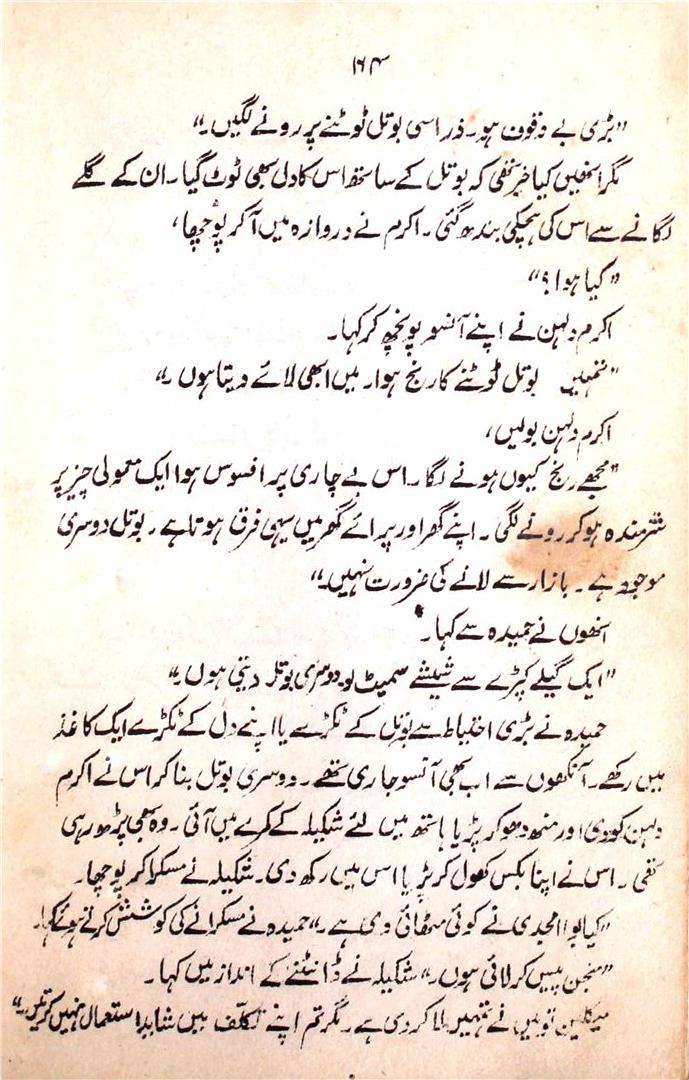 ۱۶۴
”بڑی بے وقوف ہو۔ ذراسی بوتل ٹوٹنے پر رونے لگیں۔“
مگر انھیں کیا خبر تھی کہ بوتل کے ساتھ اس کا دل بھی ٹوٹ گیا۔ ان کے گلے
لگانے سے اس کی ہچکی بندھ گئی۔ اکرم نے دروازہ میں آ کر پوچھا،
”کیا ہوا؟“
اکرم دلہن نے اپنے آنسو پونچھ کر کہا۔
”تمہیں بوتل ٹوٹنے کا رنج ہوا۔ میں ابھی لائے دیتا ہوں۔“
اکرم دلہن بولیں،
”مجھے رنج کیوں ہونے لگا۔ اس بے چاری پر افسوس ہوا ایک معمولی چیز پر
شرمندہ ہو کر رونے لگی۔ اپنے گھر اور پرائے گھر میں یہی فرق ہوتا ہے۔ بوتل دوسری
موجود ہے۔ بازار سے لانے کی ضرورت نہیں۔“
انھوں نے حمیدہ سے کہا۔
”ایک گیلے کپڑے سے شیشے سمیٹ لو دوسری بوتل دیتی ہوں۔“
حمیدہ نے بڑی احتیاط سے بوتل کے ٹکڑے یا اپنے دل کے ٹکڑے ایک کاغذ
میں رکھے۔ آنکھوں سے اب بھی آنسو جاری تھے۔ دوسری بوتل بنا کر اس نے اکرم
دلہن کو دی اور منھ دھو کر پڑیا ہاتھ میں لئے شکیلہ کے کمرے میں آئی۔ وہ بھی پڑھ رہی
تھی۔ اس نے اپنا بکس کھول کر پڑیا اس میں رکھ دی۔ شکیلہ نے مسکرا کر پوچھا۔
”کیا بوا امجدی نے کوئی مٹھائی دی ہے۔“ حمیدہ نے مسکرانے کی کوشش کرتے ہوئے کہا۔
”منجن پیس کر لائی ہوں۔“ شکیلہ نے ڈانٹنے کے انداز میں کہا۔
میکلین تو میں نے تمہیں لا کر دی ہے۔ مگر تم اپنے تکلف میں شاید استعمال نہیں کرتیں۔“